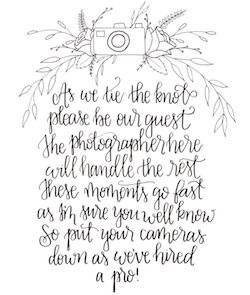 As we tie the knot
please be our guest
The photographer here
will handle the rest
These moments go fast
as I'm sure you well know
So put your cameras
down as we've hired
a pro!